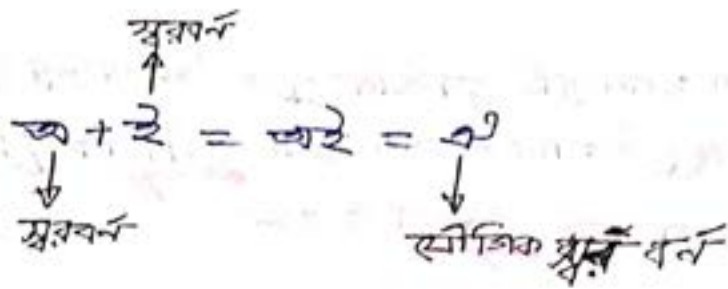 স্বরবর্ন
অ + ই = অই = ঐ
স্বরবর্ন
যৌগিক স্বর বর্ন